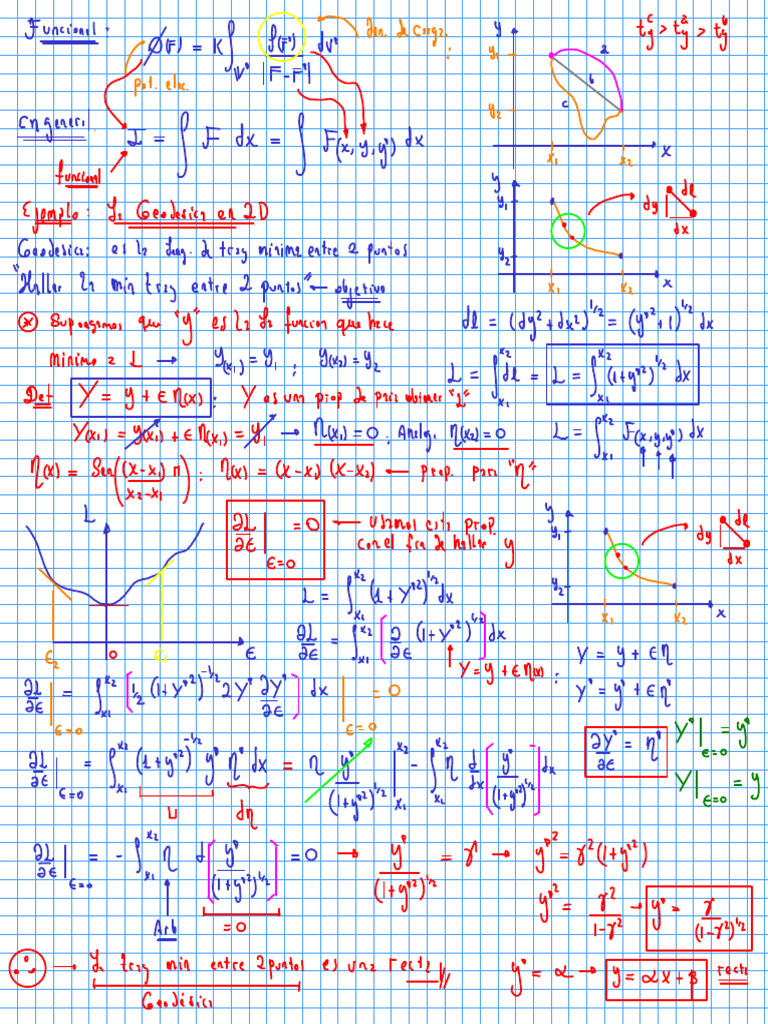 Funcional:
Ø(r⃗) = K ∫_V' ρ(r⃗') / |r⃗-r⃗'| dV'
den. de carga
pot. elec.
t_y^c > t_y^a > t_y^b
y
y₁
y₂
a
b
c
x₁ x₂ x
En general
I = ∫ F dx = ∫ F(x, y, y') dx
funcional
Ejemplo: La Geodésica en 2D
y
y₁
y₂
x₁ x₂ x
dy dl
dx
Geodésica: es la de tray mínima entre 2 puntos
"Hallar la min tray entre 2 puntos" ← objetivo
⊛ Supongamos que "y" es la función que hace
mínimo a L → y(x₁) = y₁ ; y(x₂) = y₂
dl = (dy² + dx²)^1/2 = (y'² + 1)^1/2 dx
L = ∫_x₁^x₂ dl = L = ∫_x₁^x₂ (1+y'²)^1/2 dx
Def Y = y + ϵ η(x) : Y es una prop de para obtener "L"
Y(x₁) = y(x₁) + ϵ η(x₁) = y₁ → η(x₁) = 0 : Analog. η(x₂) = 0
L = ∫_x₁^x₂ F(x, y, y') dx
η(x) = Sen((x-x₁)π / x₂-x₁) : η(x) = (x-x₁)(x-x₂) ← prop. para "η"
L
ϵ₂ 0 ϵ₁ ϵ
∂L/∂ϵ |_ϵ=0 = 0 ← usamos esta prop.
con el fin de hallar y
y
y₁
y₂
x₁ x₂ x
dy dl
dx
L = ∫_x₁^x₂ (1 + Y'²)^1/2 dx
∂L/∂ϵ = ∫_x₁^x₂ [∂/∂ϵ (1 + Y'²)^1/2] dx
Y = y + ϵ η(x) :
Y = y + ϵη
Y' = y' + ϵη'
∂L/∂ϵ |_ϵ=0 = ∫_x₁^x₂ [1/2 (1+Y'²)^-1/2 2Y' ∂Y'/∂ϵ] dx |_ϵ=0 = 0
∂Y'/∂ϵ = η'
Y'|_ϵ=0 = y'
Y|_ϵ=0 = y
∂L/∂ϵ |_ϵ=0 = ∫_x₁^x₂ (1+y'²)^-1/2 y' η' dx = η y'/(1+y'²)^1/2 |_x₁^x₂ - ∫_x₁^x₂ η d/dx [y'/(1+y'²)^1/2] dx
u dη
∂L/∂ϵ |_ϵ=0 = - ∫_x₁^x₂ η d[y'/(1+y'²)^1/2] = 0 → y'/(1+y'²)^1/2 = γ → y'² = γ²(1+y'²)
Arb = 0
y'² = γ²/1-γ² → y' = γ/(1-γ²)^1/2
→ La tray min entre 2 puntos es una recta
Geodésica
y' = α → y = αx + β recta